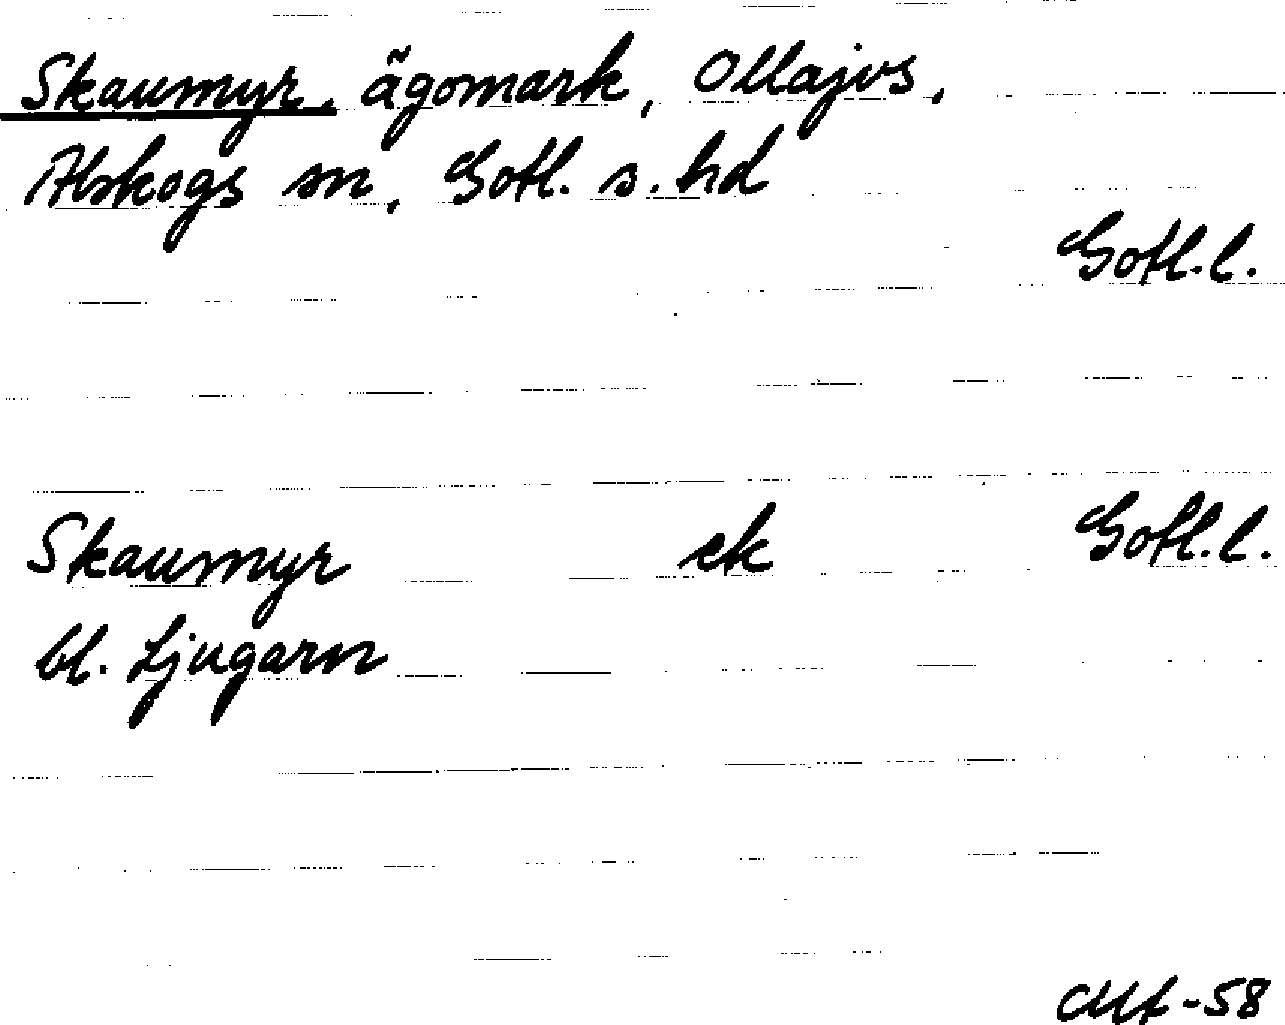 Skaumyr, ägomark, Ollajvs,
Alskogs sn, Gotl. s. hd
Gotl. l.
Skaumyr ek Gotl. l.
bl. Ljugarn
-58